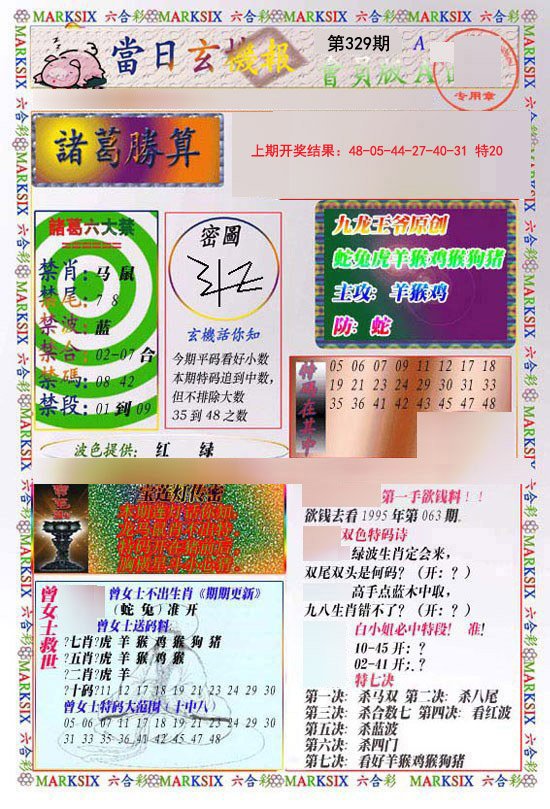 MARKSIX 六合彩 MARKSIX 六合彩 MARKSIX 六合彩 MARKSIX 六合彩
當日玄機報
第329期
A
會員版A
专用章
諸葛勝算
上期开奖结果：48-05-44-27-40-31 特20
諸葛六大禁
禁肖：马 鼠
禁尾：7 8
禁波：蓝
禁合：02-07 合
禁碼：08 42
禁段：01 到 09
密圖
玄機話你知
今期平码看好小数
本期特码追到中数，
但不排除大数
35 到 48 之数
九龙王爷原创
蛇兔虎羊猴鸡猴狗猪
主攻：羊猴鸡
防：蛇
特码在其中
05 06 07 09 11 12 17 18
19 21 23 24 29 30 31 33
35 36 41 42 43 45 47 48
波色提供： 红 绿
宝莲灯传密
第一手欲钱料！！
欲钱去看 1995 年第 063 期.
双色特码诗
绿波生肖定会来，
双尾双头是何码？（开：？）
高手点蓝木中取，
九八生肖错不了？（开：？）
白小姐必中特段！ 准！
10-45 开：？
02-41 开：？
特七决
第一决：杀马双 第二决：杀八尾
第三决：杀合数七 第四决：看红波
第五决：杀蓝波
第六决：杀四门
第七决：看好羊猴鸡猴狗猪
曾女士救世
曾女士不出生肖《期期更新》
（蛇 兔）准 开
曾女士送码料:
?七肖?虎 羊 猴 鸡 猴 狗 猪
?五肖?虎 羊 猴 鸡 猴
?二肖?虎 羊
?十码?11 12 17 18 19 21 23 24 29 30
曾女士特码大范围（十中八）
05 06 07 11 12 17 18 19 21 23 24 29 30
31 33 35 36 41 42 45 47 48
MARKSIX 六合彩 MARKSIX 六合彩 MARKSIX 六合彩 MARKSIX 六合彩